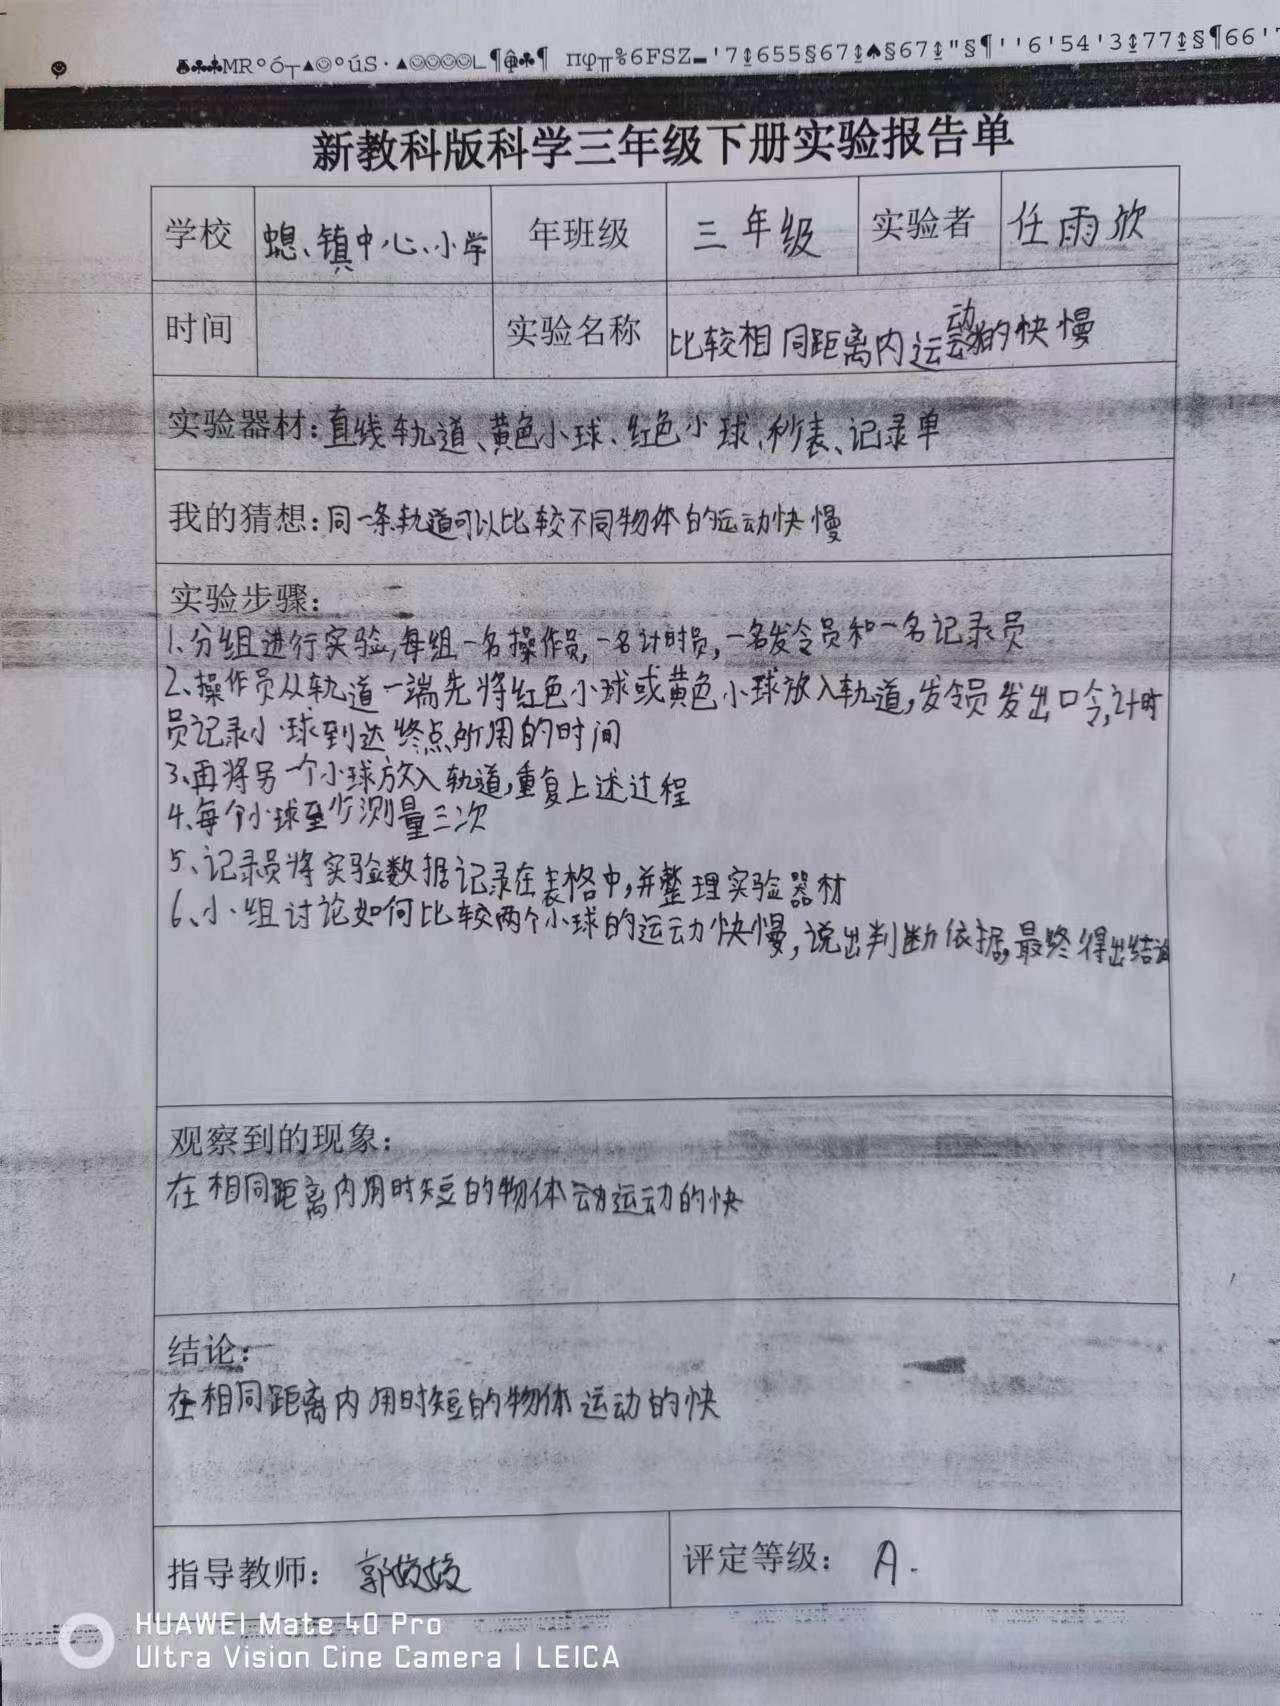 新教科版科学三年级下册实验报告单
学校 螅镇中心小学 年班级 三年级 实验者 任雨欣
时间 实验名称 比较相同距离内运动的快慢
实验器材：直线轨道、黄色小球、红色小球、秒表、记录单
我的猜想：同一条轨道可以比较不同物体的运动快慢
实验步骤：
1.分组进行实验,每组一名操作员,一名计时员,一名发令员和一名记录员
2、操作员从轨道一端先将红色小球或黄色小球放入轨道,发令员发出口令,计时
员记录小球到达终点所用的时间
3、再将另一个小球放入轨道,重复上述过程
4、每个小球至少测量三次
5、记录员将实验数据记录在表格中,并整理实验器材
6、小组讨论如何比较两个小球的运动快慢,说出判断依据,最终得出结论
观察到的现象：
在相同距离内用时短的物体动运动的快
结论：
在相同距离内用时短的物体运动的快
指导教师： 郭姣姣 评定等级： A.
HUAWEI Mate 40 Pro
Ultra Vision Cine Camera | LEICA